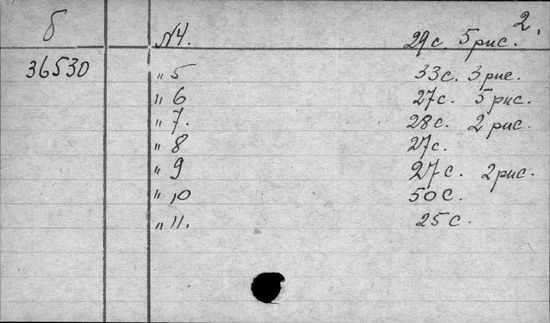 2.
б №4. 29с. 5 рис.
36530 „ 5 33с. 3 рис.
„ 6 27с. 5 рис.
„ 7. 28с. 2 рис.
„ 8 27с.
„ 9 27с. 2 рис.
„ 10 50с.
„ 11. 25с.